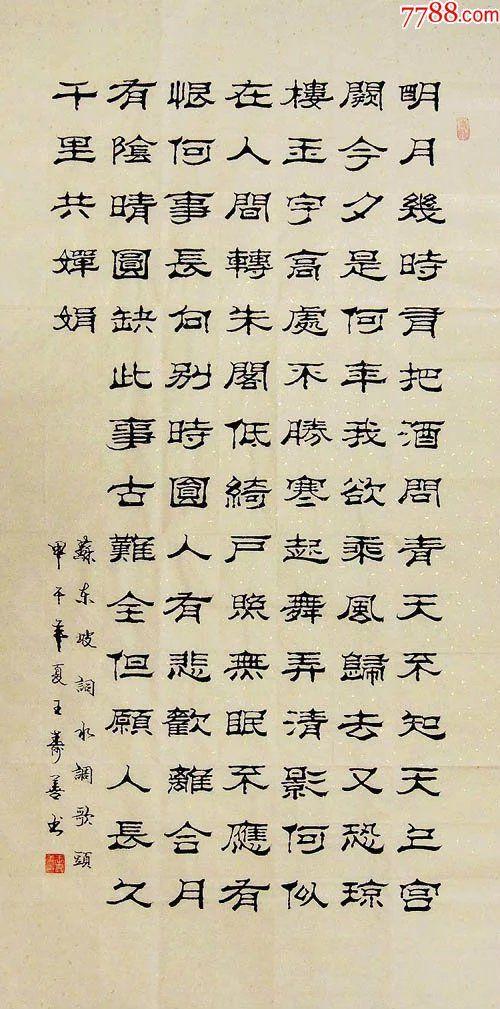 7788.com
明月幾時有把酒問青天不知天上宮
闕今夕是何年我欲乘風歸去又恐琼
樓玉宇高處不勝寒起舞弄清影何似
在人間轉朱閣低綺戶照無眠不應有
恨何事長向別時圓人有悲歡離合月
有陰晴圓缺此事古難全但願人長久
千里共嬋娟
蘇東坡詞水調歌頭
甲午年夏王壽善书